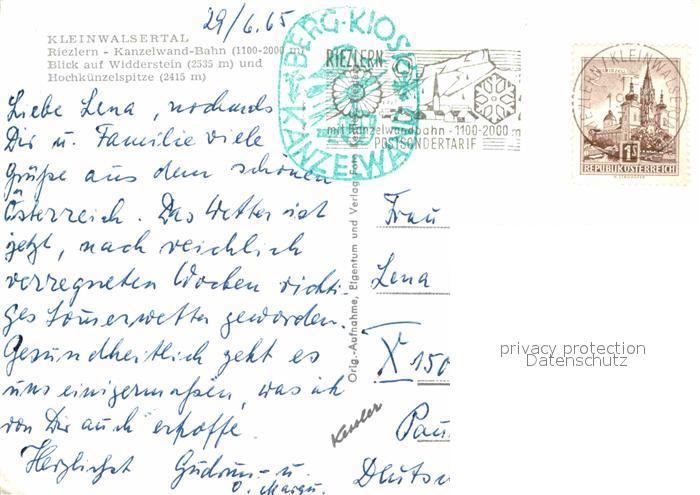 29/6.65
KLEINWALSERTAL
Riezlern - Kanzelwand-Bahn (1100-2000 m)
Blick auf Widderstein (2535 m) und
Hochkünzelspitze (2415 m)
BERG-KIOSK
KANZELWAND
RIEZLERN
mit Kanzelwandbahn - 1100-2000 m
POSTSONDERTARIF
1S
REPUBLIK ÖSTERREICH
Liebe Lena, nochmals
Dir u. Familie viele
Grüße aus dem schönen
Österreich. Das Wetter ist
jetzt, nach reichlich
verregneten Wochen richti-
ges Sommerwetter geworden.
Gesundheitlich geht es
uns einigermaßen, was ich
von Dir auch erhoffe.
Herzlichst Gudrun- u.
Orig.-Aufnahme, Eigentum und Verlag Foto
Kessler
Frau
Lena
X 150
Pau
Deutsc
privacy protection
Datenschutz